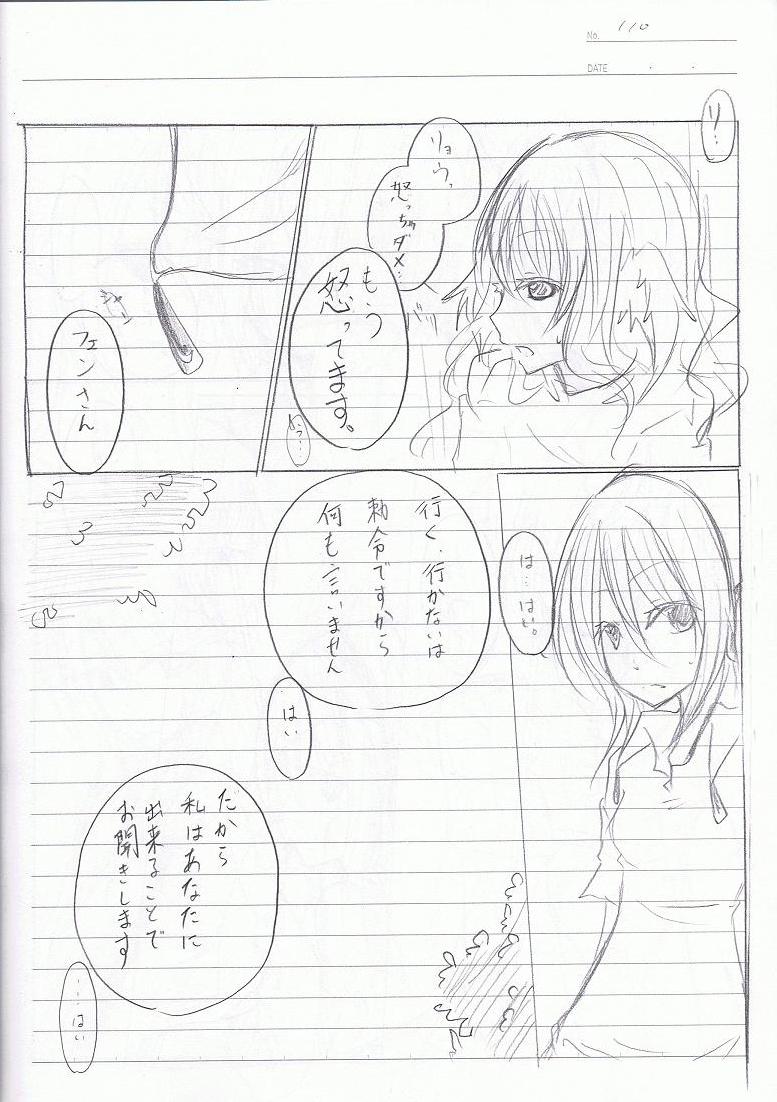 No. 110
DATE
リ…
リョウ、
怒っちゃダメ…
もう
怒ってます。
フェンさん
は…はい。
行く、行かないは
勅令ですから
何も言いません
はい
だから
私はあなたに
出来ることで
お聞きします
……はい